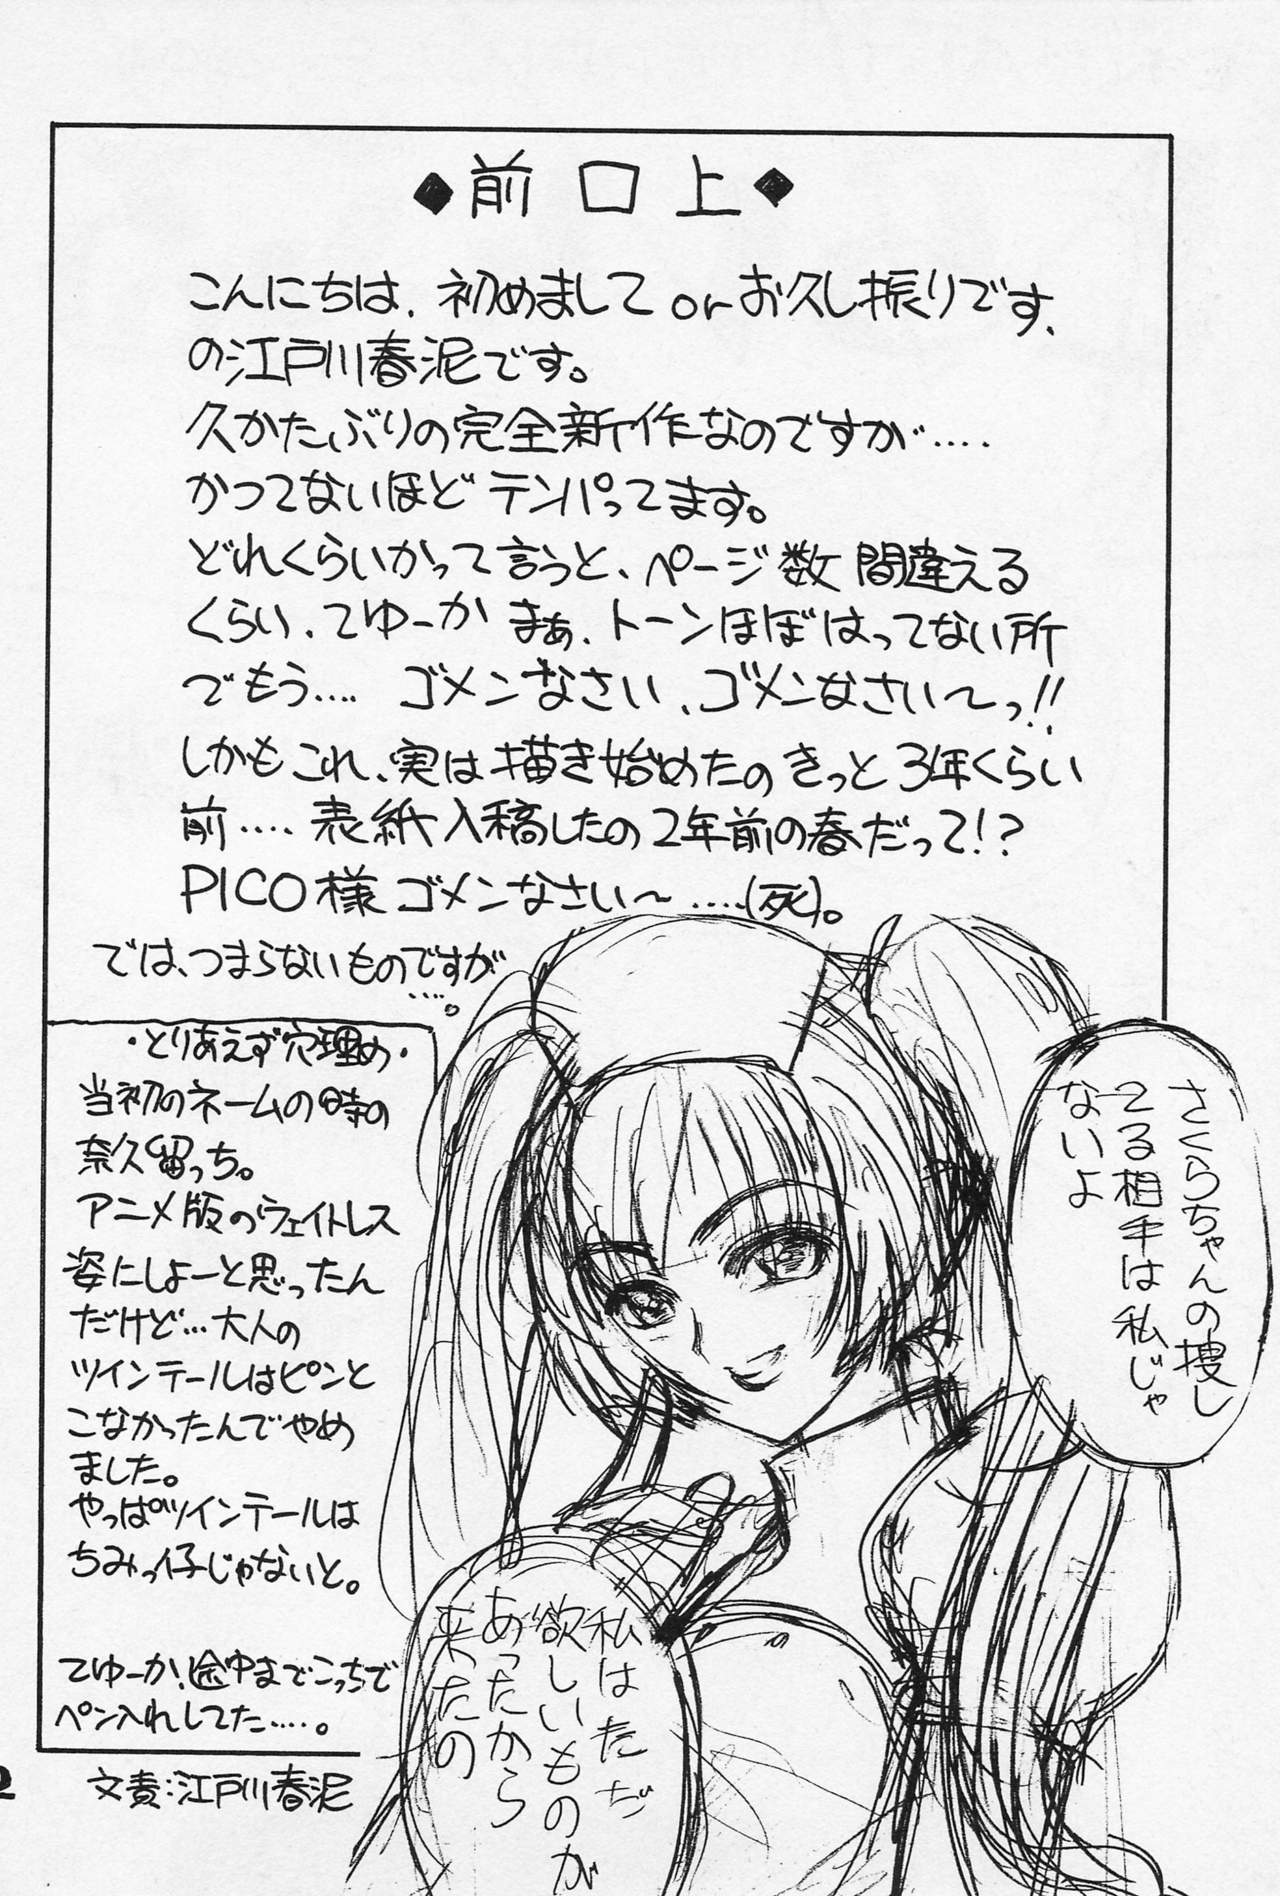 ◆前口上◆
こんにちは、初めましてorお久し振りです、
の江戸川春泥です。
久かたぶりの完全新作なのですが‥‥
かつてないほどテンパってます。
どれくらいかって言うと、ページ数間違える
くらい、てゆーかまぁ、トーンほぼはってない所
でもう‥‥ゴメンなさい、ゴメンなさい〜っ!!
しかもこれ、実は描き始めたのきっと3年くらい
前‥‥表紙入稿したの2年前の春だって!?
PICO様ゴメンなさい〜‥‥(死)。
では、つまらないものですが
‥‥。
さくらちゃんの捜し
てる相手は私じゃ
ないよ
・とりあえず穴埋め・
当初のネームの時の
奈久留っち。
アニメ版のウェイトレス
姿にしよーと思ったん
だけど…大人の
ツインテールはピンと
こなかったんでやめ
ました。
やっぱツインテールは
ちみっ子じゃないと。
てゆーか、途中までこっちで
ペン入れしてた‥‥。
私はただ
欲しいものが
あったから
来たの
文責:江戸川春泥
2